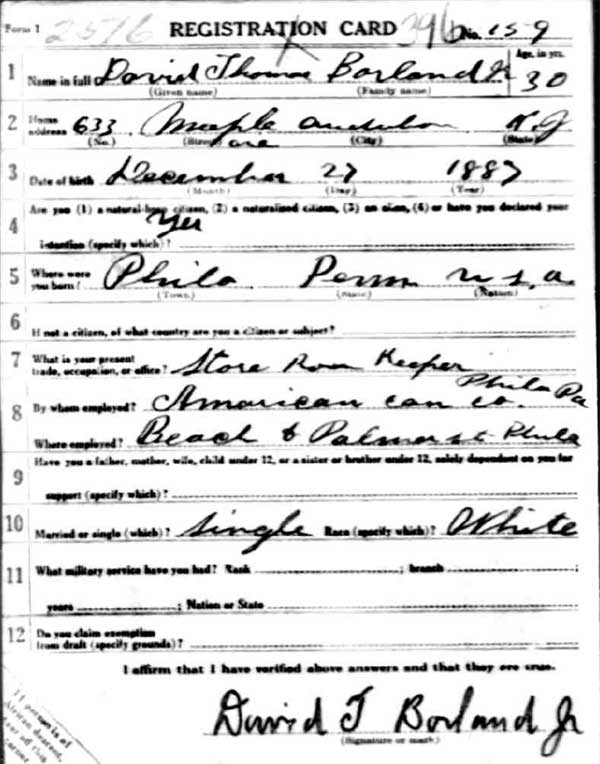 Form 1 2576 REGISTRATION CARD 396 No. 159
1 Name in full David Thomas Borland Jr Age, in yrs. 30
(Given name) (Family name)
2 Home address 633 Maple ave Audubon N.J
(No.) (Street) (City) (State)
3 Date of birth December 27 1887
(Month) (Day) (Year)
4 Are you (1) a natural-born citizen, (2) a naturalized citizen, (3) an alien, (4) or have you declared your
intention (specify which)? Yes
5 Where were you born? Phila Penn U.S.A.
(Town) (State) (Nation)
6 If not a citizen, of what country are you a citizen or subject?
7 What is your present trade, occupation, or office? Store Room Keeper
8 By whom employed? American can co. Phila Pa
Where employed? Beach & Palmer st Phila
9 Have you a father, mother, wife, child under 12, or a sister or brother under 12, solely dependent on you for
support (specify which)?
10 Married or single (which)? Single Race (specify which)? White
11 What military service have you had? Rank ; branch ;
years ; Nation or State
12 Do you claim exemption from draft (specify grounds)?
I affirm that I have verified above answers and that they are true.
David T Borland Jr
(Signature or mark)
If person is of
African descent,
tear off this
corner